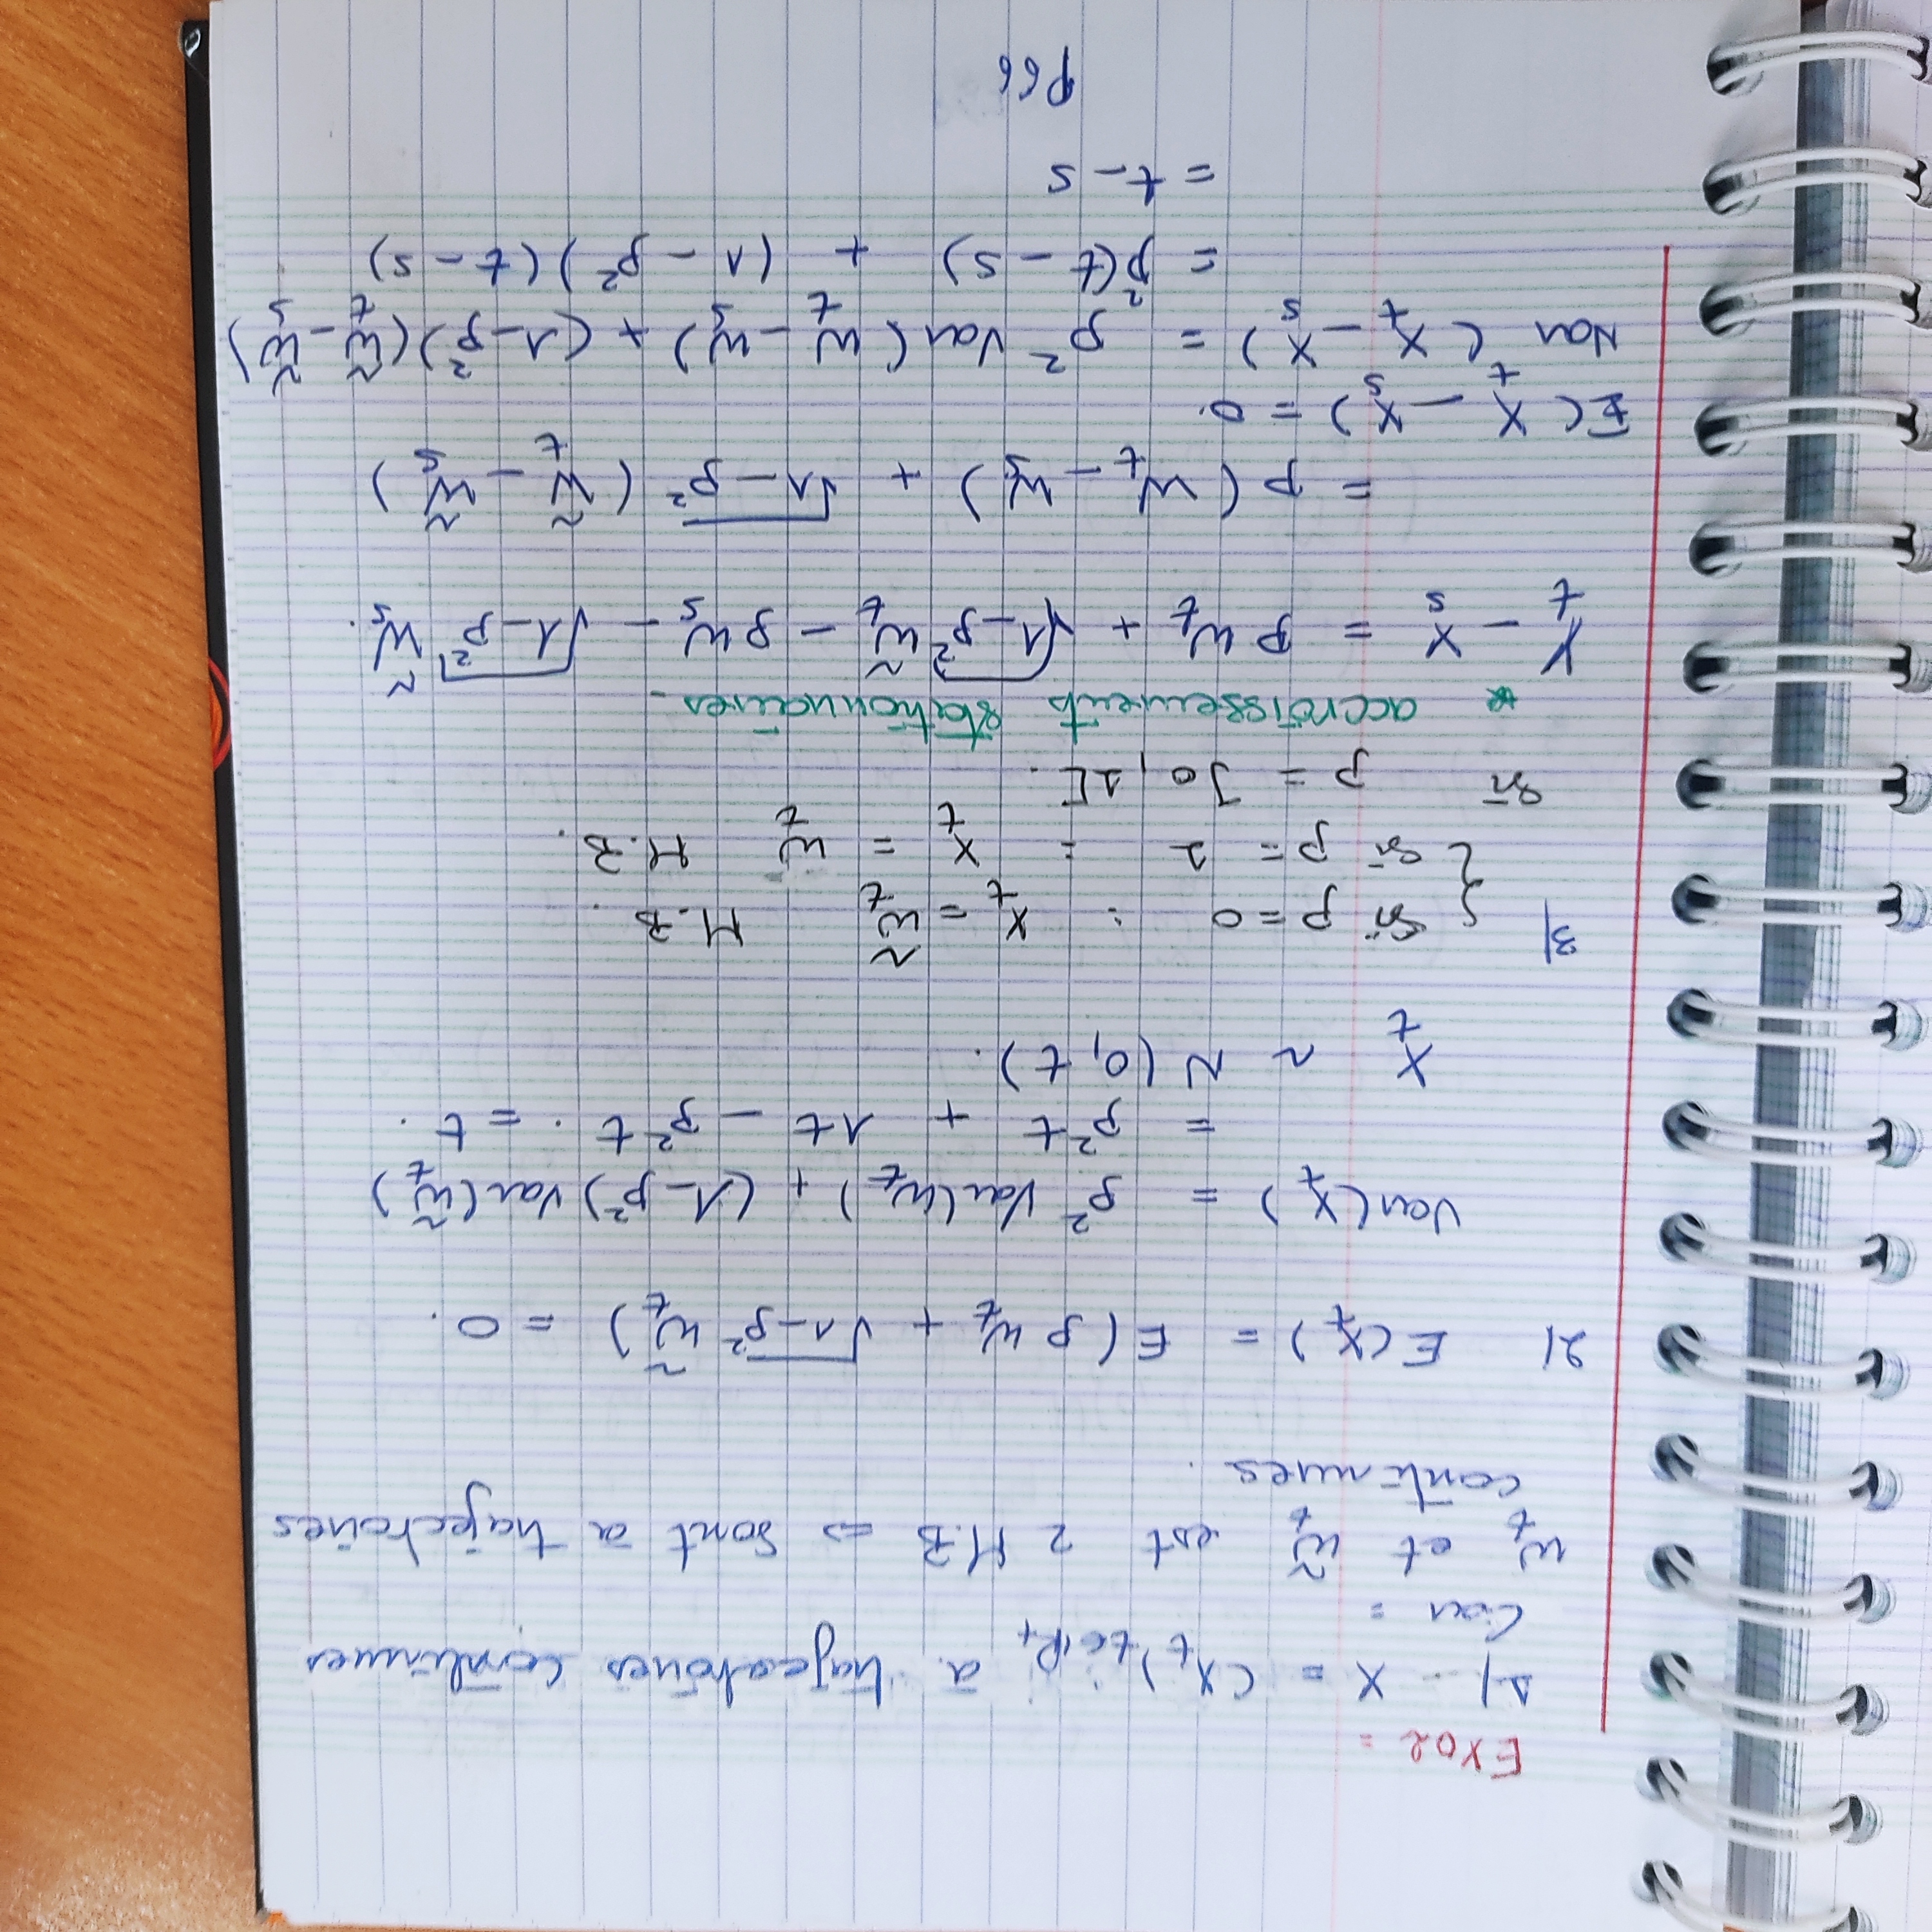 EXO2 =
1/ - X = (X_t)_{t∈ℝ+} à trajectoires continues
Car =
W_t et W̃_t est 2 M.B => sont à trajectoires
continues.
2/ E(X_t) = E(ρ W_t + √(1-ρ²) W̃_t) = 0.
Var(X_t) = ρ² Var(W_t) + (1-ρ²) Var(W̃_t)
= ρ²t + 1t - ρ²t . = t .
X_t ~ N(0, t).
3/ { Si ρ = 0 : X_t = W̃_t M.B.
{ Si ρ = 1 : X_t = W_t M.B.
Si ρ = ]0, 1[.
* accroissements stationnaires -
X_t - X_s = ρ W_t + √(1-ρ²) W̃_t - ρ W_s - √(1-ρ²) W̃_s.
= ρ (W_t - W_s) + √(1-ρ²) (W̃_t - W̃_s)
E(X_t - X_s) = 0.
Var (X_t - X_s) = ρ² Var(W_t - W_s) + (1-ρ²)(W̃_t - W̃_s)
= ρ²(t - s) + (1 - ρ²)(t - s)
= t - s
P66